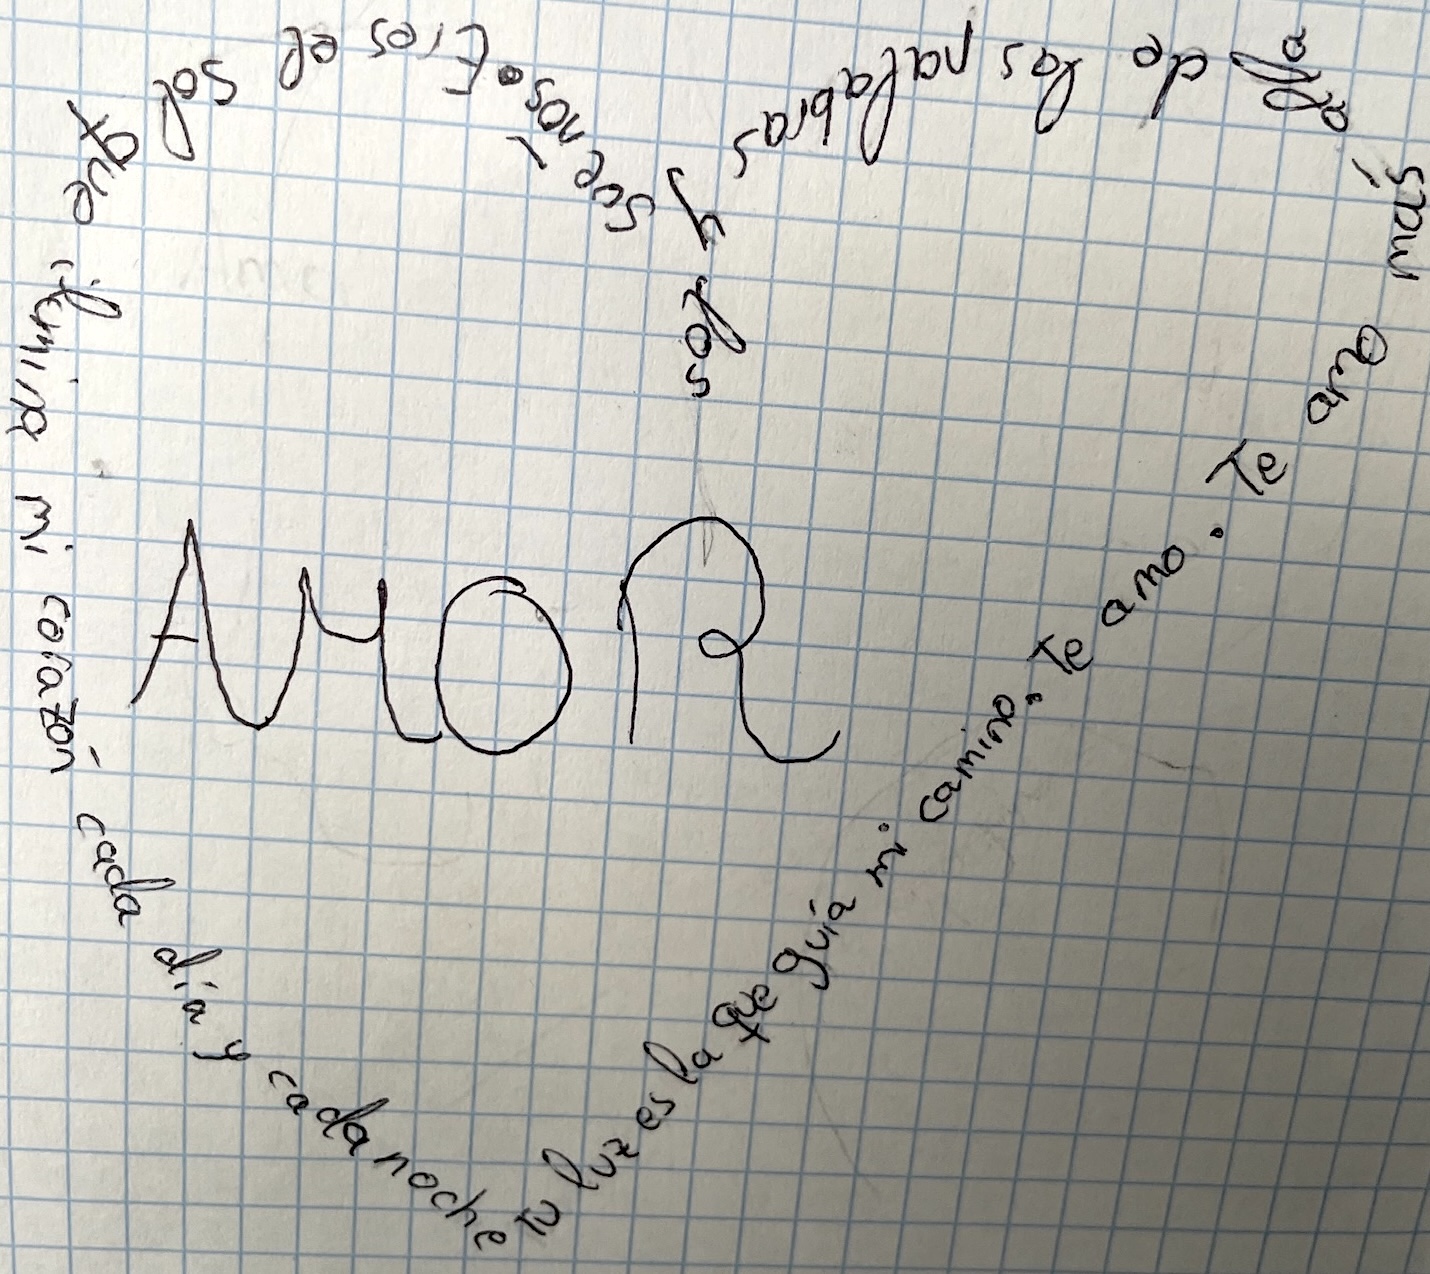 AMOR
Tu luz es la que guía mi camino. Te amo. Te amo más alla de las palabras y los sueños. Eres el sol que ilumina mi corazón cada día y cada noche